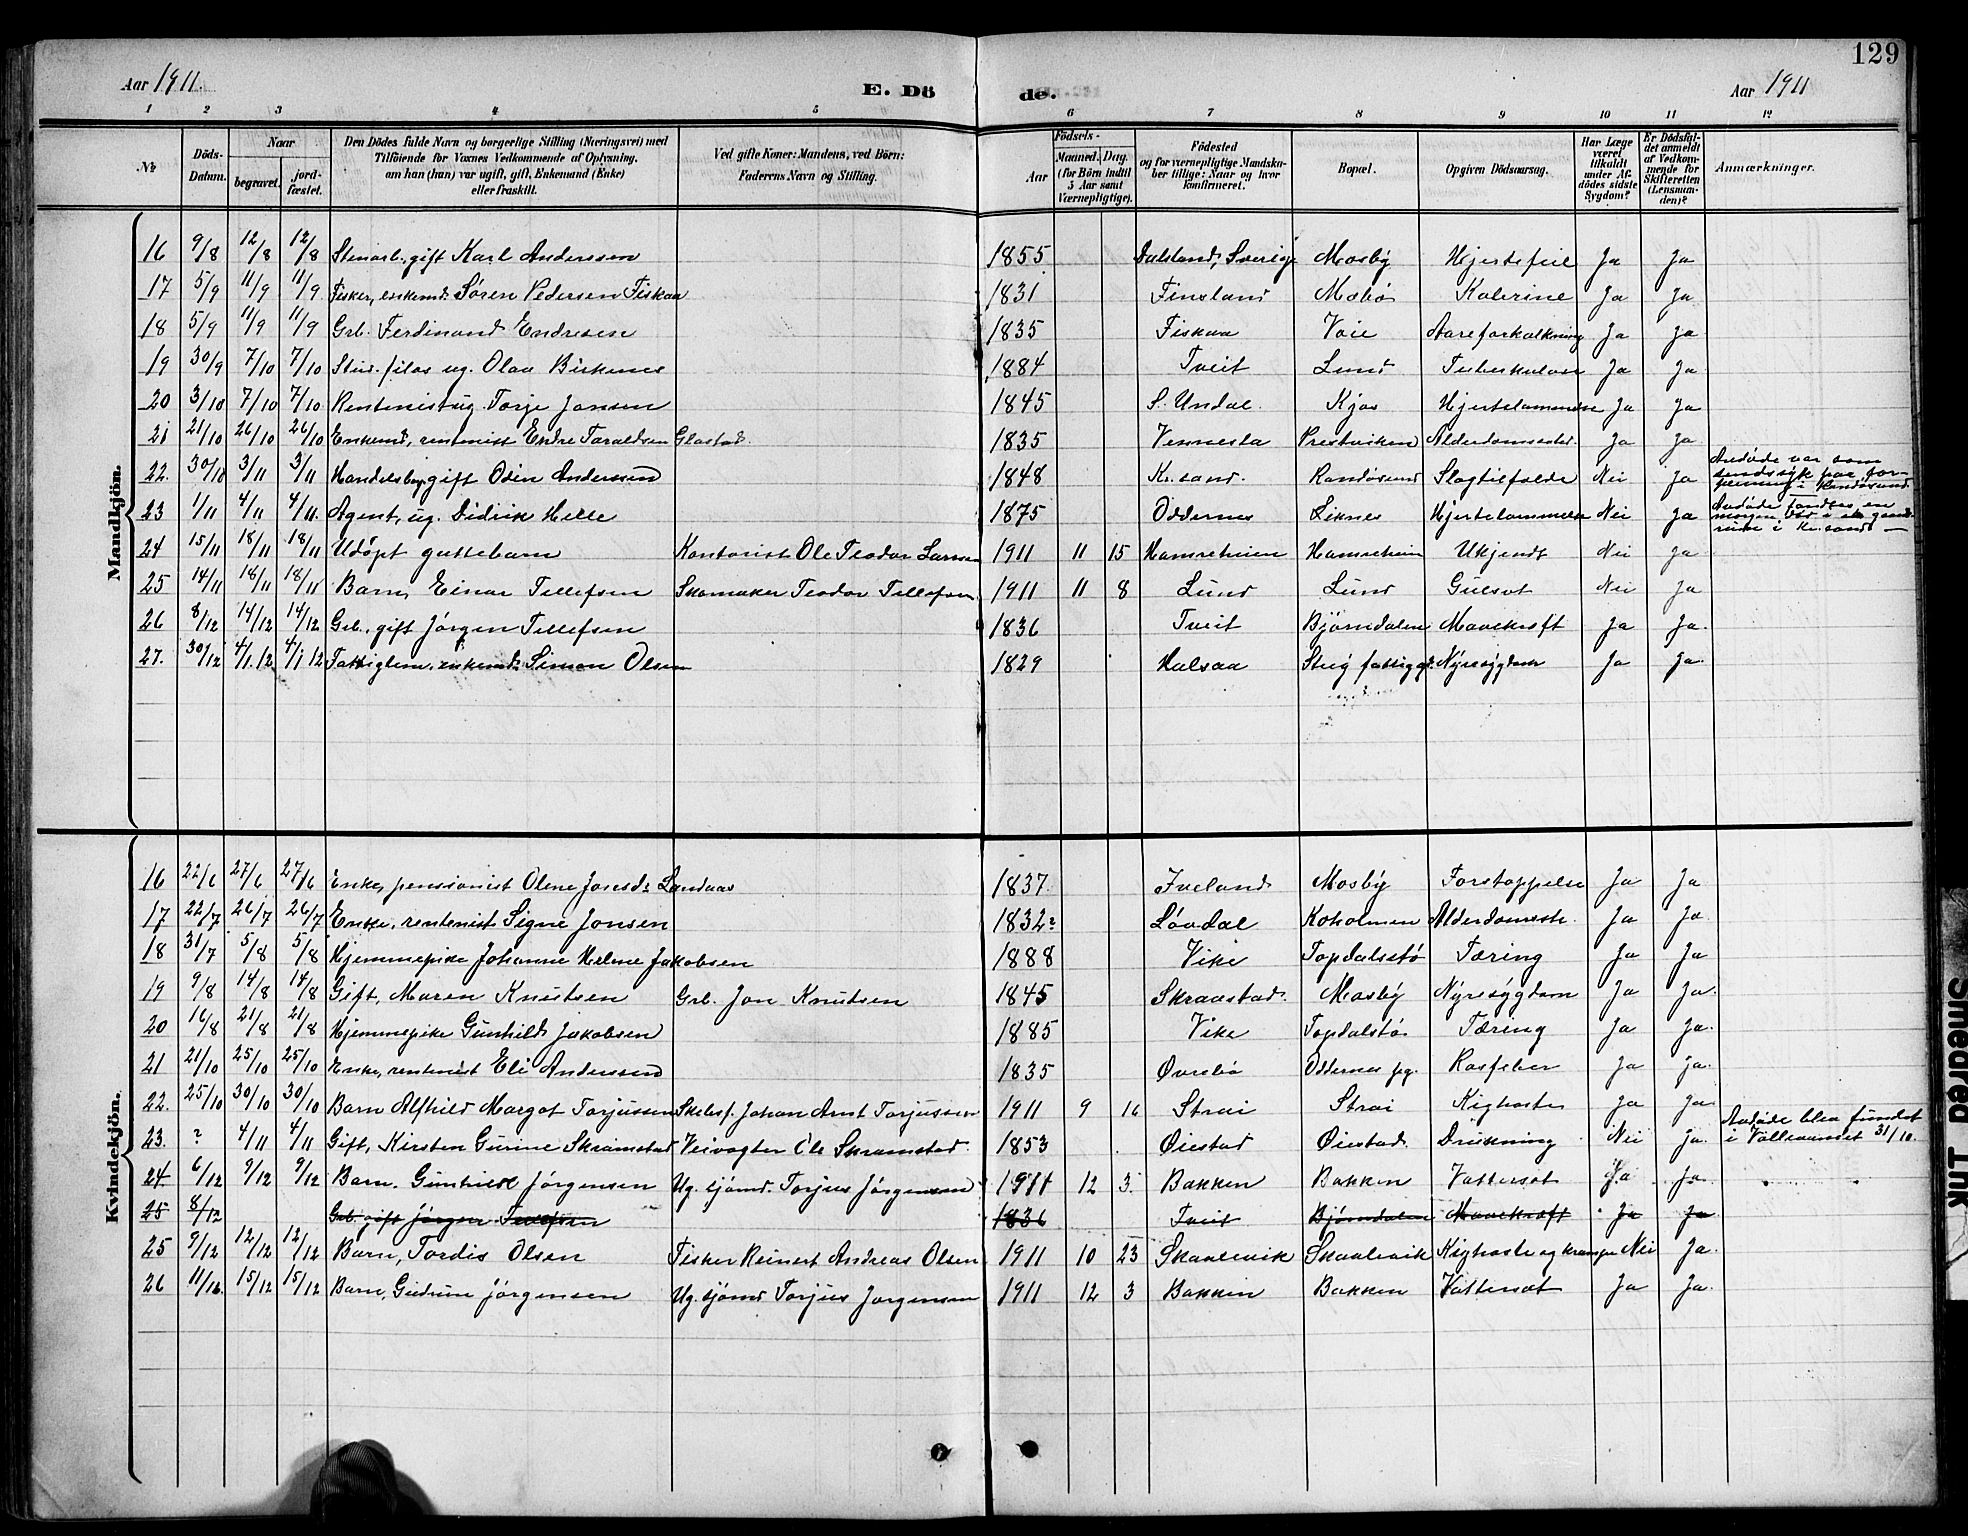 129
Aar 1911. E. Dö de. Aar 1911
1 2 3 4 5 6 7 8 9 10 11 12
No. Döds-Datum. Naar begravet. jordfæstet. Den Dödes fulde Navn og borgerlige Stilling (Næringsvei) med Tilföiende for Voxnes Vedkommende af Oplysning, om han (hun) var ugift, gift, Enkemand (Enke) eller fraskilt. Ved gifte Koner: Mandens, ved Börn: Faderens Navn og Stilling. Födsels- Aar Maaned. Dag. (for Börn indtil 5 Aar samt Værnepligtige). Födested og for værnepligtige Mandskaber tillige: Naar og hvor konfirmeret. Bopæl. Opgiven Dödsaarsag. Har Læge været tilkaldt under Afdödes sidste Sygdom? Er Dödsfaldet anmeldt af Vedkommende for Skifteretten (Lensmanden)? Anmærkninger.
Mandkjön.
16 9/8 12/8 12/8 Stenarb., gift Karl Anderssen 1855 Dalsland, Sverige Mosby Hjertefeil Ja Ja
17 5/9 11/9 11/9 Fisker, enkemd. Søren Pedersen Fiskaa 1831 Finsland Mæbø Kolerine Ja Ja
18 5/9 11/9 11/9 Grb. Ferdinand Endresen 1835 Fiskaa Voie Aareforkalkning Ja Ja
19 30/9 7/10 7/10 Stud. filos ug. Olav Birkenes 1884 Tveit Lund Tuberkulose Ja Ja
20 3/10 7/10 7/10 Rentenist ug. Torje Jansen 1845 S. Undal. Kjos Hjertelammelse Ja Ja
21 21/10 26/10 26/10 Enkemd, rentenist Endre Taraldsen Glastad. 1835 Vennesla Prestviken Alderdomssvækk. Ja Ja
22. 30/10 3/11 3/11 Handelsbg. gift Odin Anderssen 1848 Kr.sand. Randøsund Slagtilfælde Nei Ja Avdøde var som sindssyk paa forpleining i Randøsund.
23 1/11 4/11 4/11. Agent, ug. Didrik Helle 1875 Oddernes Liknes Hjertelammelse Nei Ja Avdøde fandtes en morgen død i sin gaardsrum i Kr.sand
24 15/11 18/11 18/11 Udöpt guttebarn Kontorist Ole Teodor Larsen 1911 11 15 Hamreheien Hamreheien Ukjendt Nei Ja
25 14/11 18/11 18/11 Barn, Einar Tellefsen Skomaker Teodor Tellefsen 1911 11 8 Lund Lund Gulsot Nei Ja
26 8/12 14/12 14/12 Grb., gift Jörgen Tellefsen 1836 Tveit Bjørndalen Mavekræft Ja Ja.
27. 30/12 4/1.12 4/1 12 Fattiglem, enkemd. Simon Olsen 1829 Halsaa Strig fattiggd. Nyresygdom Ja Ja.
Kvindekjön.
16 22/6 27/6 27/6 Enke, pensionist Olene Josesd. Landaas 1837. Iveland Mosby Forstoppelse Ja Ja
17 22/7 26/7 26/7 Enke, rentenist Signe Jonsen 1832? Løvdal Koholmen Alderdomssv. Ja Ja.
18 31/7 5/8 5/8 Hjemmepike Johanne Helene Jakobsen 1888 Vike Topdalsstø Tæring Ja Ja
19 9/8 14/8 14/8 Gift, Maren Knutsen Grb. Jon Knutsen 1845 Skraastad. Mosby Nyresygdom Ja Ja.
20 16/8 21/8 21/8 Hjemmepike Gunhild Jakobsen 1885 Vike Topdalstø Tæring Ja Ja.
21 21/10 25/10 25/10 Enke, rentenist Eli Anderssen 1835 Øvrebø Oddernes pg. Rosfeber Ja ja.
22. 25/10 30/10 30/10 Barn Alfhild Margot Torjussen Skibsf. Johan Arnt Torjussen 1911 9 16 Strai Strai Kighoste Ja Ja.
23. ? 4/11 4/11 Gift, Kirsten Gurine Skramstad Veivogter Ole Skramstad. 1853 Øiestad Øiestad. Drukning Nei ja. Avdøde blev fundet i Vollevandet 31/10.
24 6/12 9/12 9/12 Barn. Gunhild Jörgensen Ug. sjömd. Torjus Jörgensen 1911 12 3. Bakken Bakken Vattersot Ja Ja.
25 8/12 Grb. gift Jörgen Tellefsen 1836 Tveit Bjørndalen Mavekræft Ja Ja
25 9/12 12/12 12/12 Barn, Tordis Olsen Fisker Reinert Andreas Olsen 1911 10 23 Skaalevik Skaalevik Kighoste og krampe Nei Ja.
26 11/12. 15/12 15/12 Barn, Gudrun Jörgensen Ug. sjömd Torjus Jörgensen 1911 12 3 Bakken Bakken Vattersot Ja Ja.
Smedred Ink